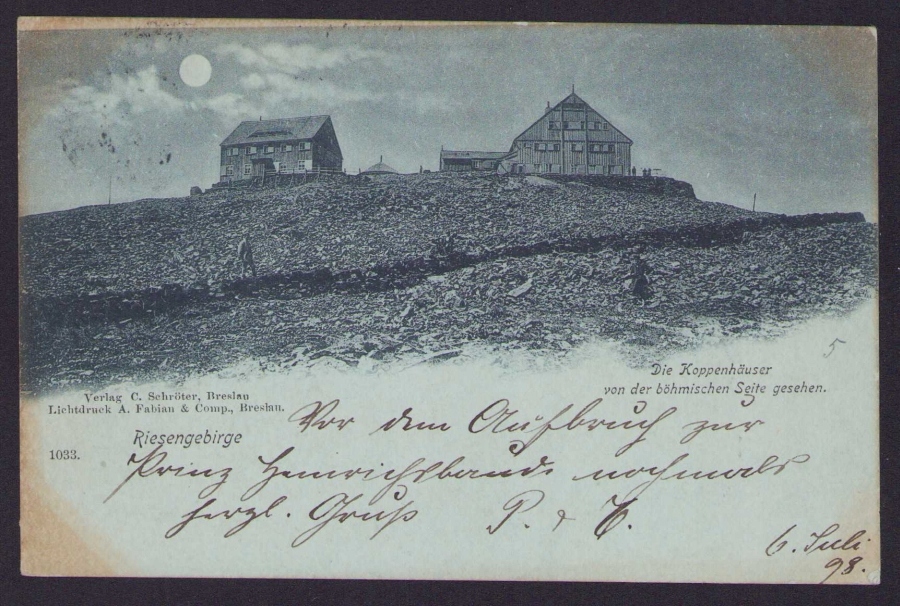 Die Koppenhäuser
von der böhmischen Seite gesehen.
5
Verlag C. Schröter, Breslau
Lichtdruck A. Fabian & Comp., Breslau.
Riesengebirge
1033.
Vor dem Aufbruch zur
Prinz Heinrichsbaude nochmals
herzl. Gruß P. &
6. Juli
98.